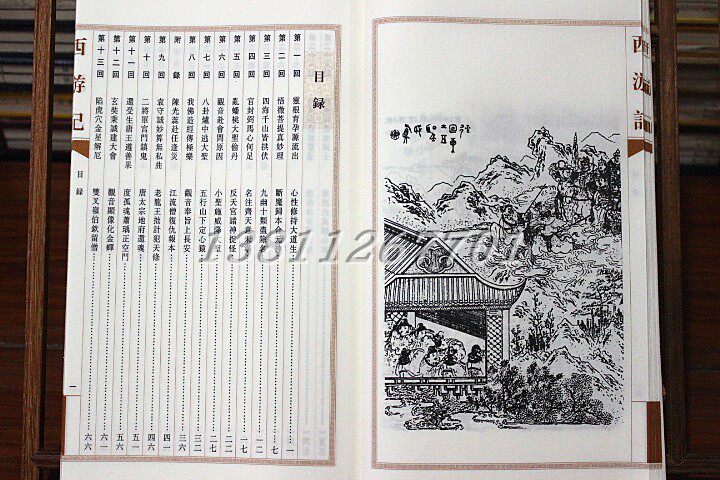 目録
第一回 靈根育孕源流出 心性修持大道生 一
第二回 悟徹菩提真妙理 斷魔歸本 七
第三回 四海千山皆拱伏 九幽十類盡除名 一二
第四回 官封弼馬心何足 名注齊天 一七
第五回 亂蟠桃大聖偷丹 反天宮諸神捉怪 二二
第六回 觀音赴會問原因 小聖施威降 二七
第七回 八卦爐中逃大聖 五行山下定心猿 三二
第八回 我佛造經傳極樂 觀音奉旨上長安 三六
附録 陳光蕊赴任逢災 江流僧復仇報本 四一
第九回 袁守誠妙算無私曲 老龍王拙計犯天條 四六
第十回 二將軍宮門鎮鬼 唐太宗地府還魂 五一
第十一回 還受生唐王遵善果 度孤魂蕭瑀正空門 五六
第十二回 玄奘秉誠建大會 觀音顯像化金蟬 六一
第十三回 陷虎穴金星解厄 雙叉嶺伯欽留僧 六六
西游記
目録
一
西游記
13811267701